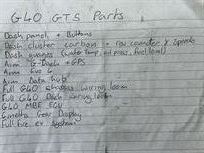 G40 GTS Parts
Dash panel + Buttons
Dash cluster carbon + rev counter & speedo
Dash guages (water temp, oil press, fuel level)
Aim G-Dash + GPS
Aim Evo 4
Aim Data Hub
Full G40 chassis wiring loom
Full G40 Dash wiring loom
G40 MBE ECU
Gear Display
Full Fire ex system